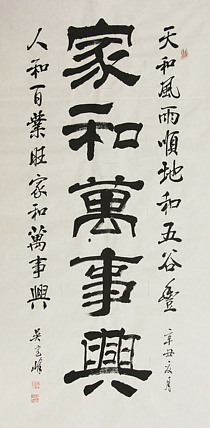 家和萬事興
天和風雨順地和五谷豐
辛丑夏月
人和百業旺家和萬事興
吳